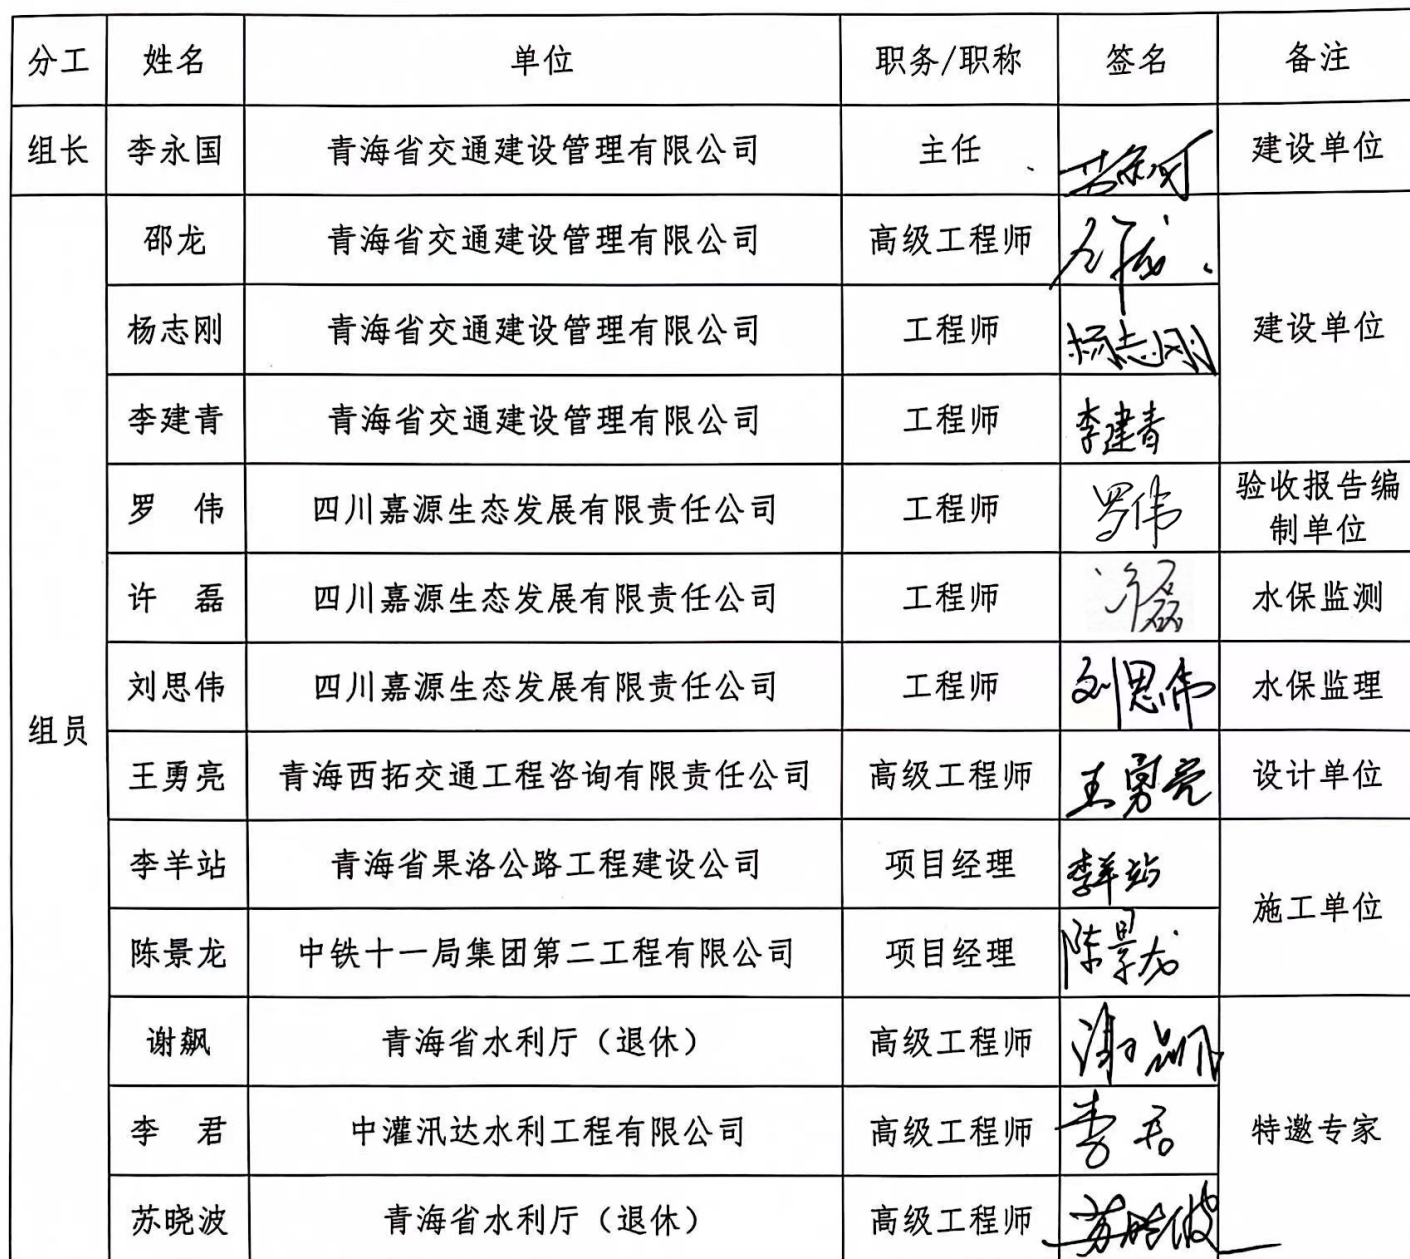 分工 姓名 单位 职务/职称 签名 备注
组长 李永国 青海省交通建设管理有限公司 主任 建设单位
组员
邵龙 青海省交通建设管理有限公司 高级工程师
杨志刚 青海省交通建设管理有限公司 工程师 杨志刚 建设单位
李建青 青海省交通建设管理有限公司 工程师 李建青
罗 伟 四川嘉源生态发展有限责任公司 工程师 罗伟 验收报告编
制单位
许 磊 四川嘉源生态发展有限责任公司 工程师 许磊 水保监测
刘思伟 四川嘉源生态发展有限责任公司 工程师 刘思伟 水保监理
王勇亮 青海西拓交通工程咨询有限责任公司 高级工程师 王勇亮 设计单位
李羊站 青海省果洛公路工程建设公司 项目经理 李羊站 施工单位
陈景龙 中铁十一局集团第二工程有限公司 项目经理 陈景龙
谢飙 青海省水利厅（退休） 高级工程师
李 君 中灌汛达水利工程有限公司 高级工程师 李君 特邀专家
苏晓波 青海省水利厅（退休） 高级工程师 苏晓波